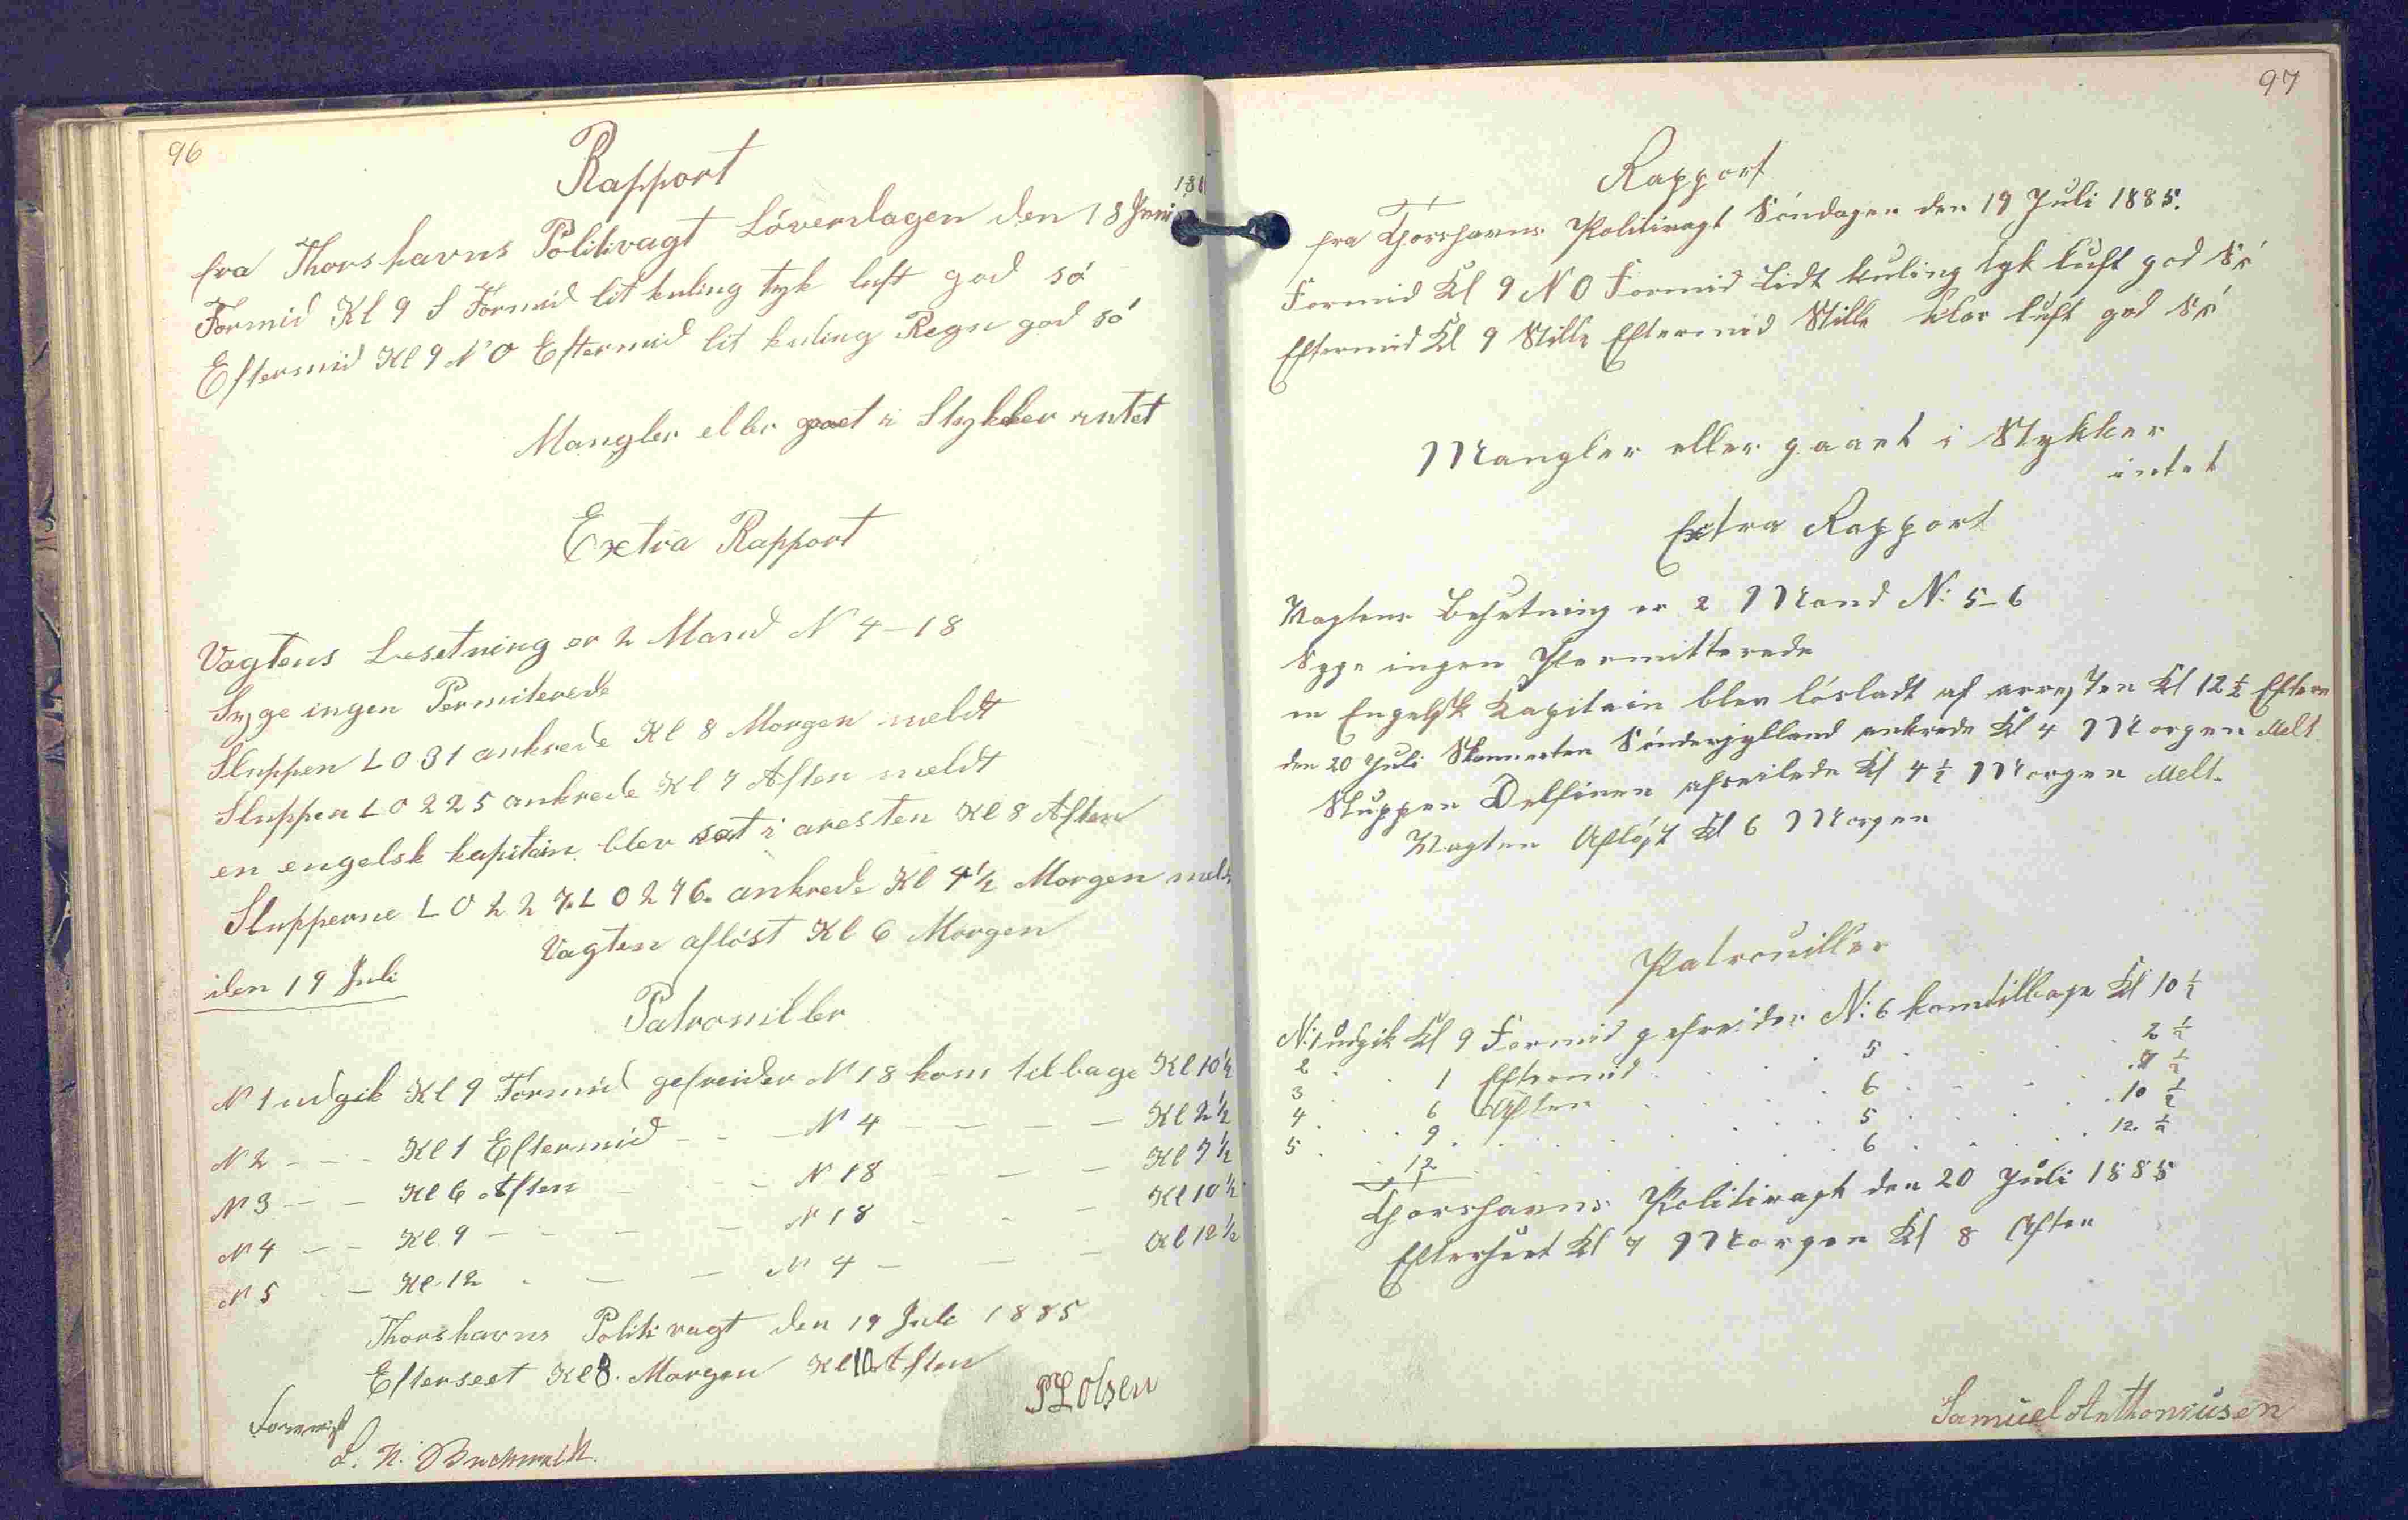 96
Rapport
fra Thorshavns Politivagt Löverdagen den 18 Juni 188
Formid Kl 9 S Formid lit kuling tyk luft god só
Eftermid Kl 9 N O Eftermid lit kuling Regn god só
Mangler eller gaaet i Stykker intet
Extra Rapport
Vagtens Besetning er 2 Mand N 4-18
Syge ingen Permiterede
Sluppen L O 31 ankrede Kl 8 Morgen meldt
Sluppen L O 225 ankrede Kl 7 Aften meldt
en engelsk kapitain blev sat i aresten Kl 8 Aften
Slupperne L O 227. L O 246. ankrede Kl 4½ Morgen meld
Vagten aflóst Kl 6 Morgen
den 19 Juli
Patrouiller
N 1 udgik Kl 9 Formid gefreider N 18 kom tilbage Kl 10½
N 2 - - - Kl 1 Eftermid - - - N 4 - - - - Kl 2½
N 3 - - Kl 6 Aften - - - N 18 - - - Kl 7½
N 4 - - Kl 9 - - - - N 18 - - - Kl 10½
N 5 - - Kl 12 - - - N 4 - - - Kl 12½
Thorshavns Politivagt den 19 Juli 1885
Efterseet Kl 8. Morgen Kl 10 Aften
P L Olsen
97
Rapport
fra Thorshavns Politivagt Söndagen den 19 Juli 1885.
Formid Kl 9 N O Formid Lidt kuling tyk luft god Sö
Eftermid Kl 9 Stille Eftermid Stille klar luft god Sö
Mangler eller gaaet i Stykker
intet
Extra Rapport
Vagtens Besetning er 2 Mand N: 5-6
Syge ingen Permitterede
en Engelsk Kapitain blev lósladt af arresten Kl 12½ Efterm
den 20 Juli Skonnerten Sónderjylland ankrede Kl 4 Morgen Melt
Sluppen Delfinen afseilede Kl 4½ Morgen Melt.
Vagten Aflóst Kl 6 Morgen
Patrouiller
N: 1 udgik Kl 9 Formid gefreider N: 6 kom tilbage Kl 10½
2 . . 1 Eftermid . . . 5 . . . . 2½
3 . . 6 Aften . . . 6 . . . . 7½
4 . . . 9 . . . . . 5 . . . . 10½
5 . . 12 . . . . . 6 . . . . 12.½
Thorshavns Politivagt den 20 Juli 1885
Efterseet Kl 7 Morgen Kl 8 Aften
Samuel Anthoniusen